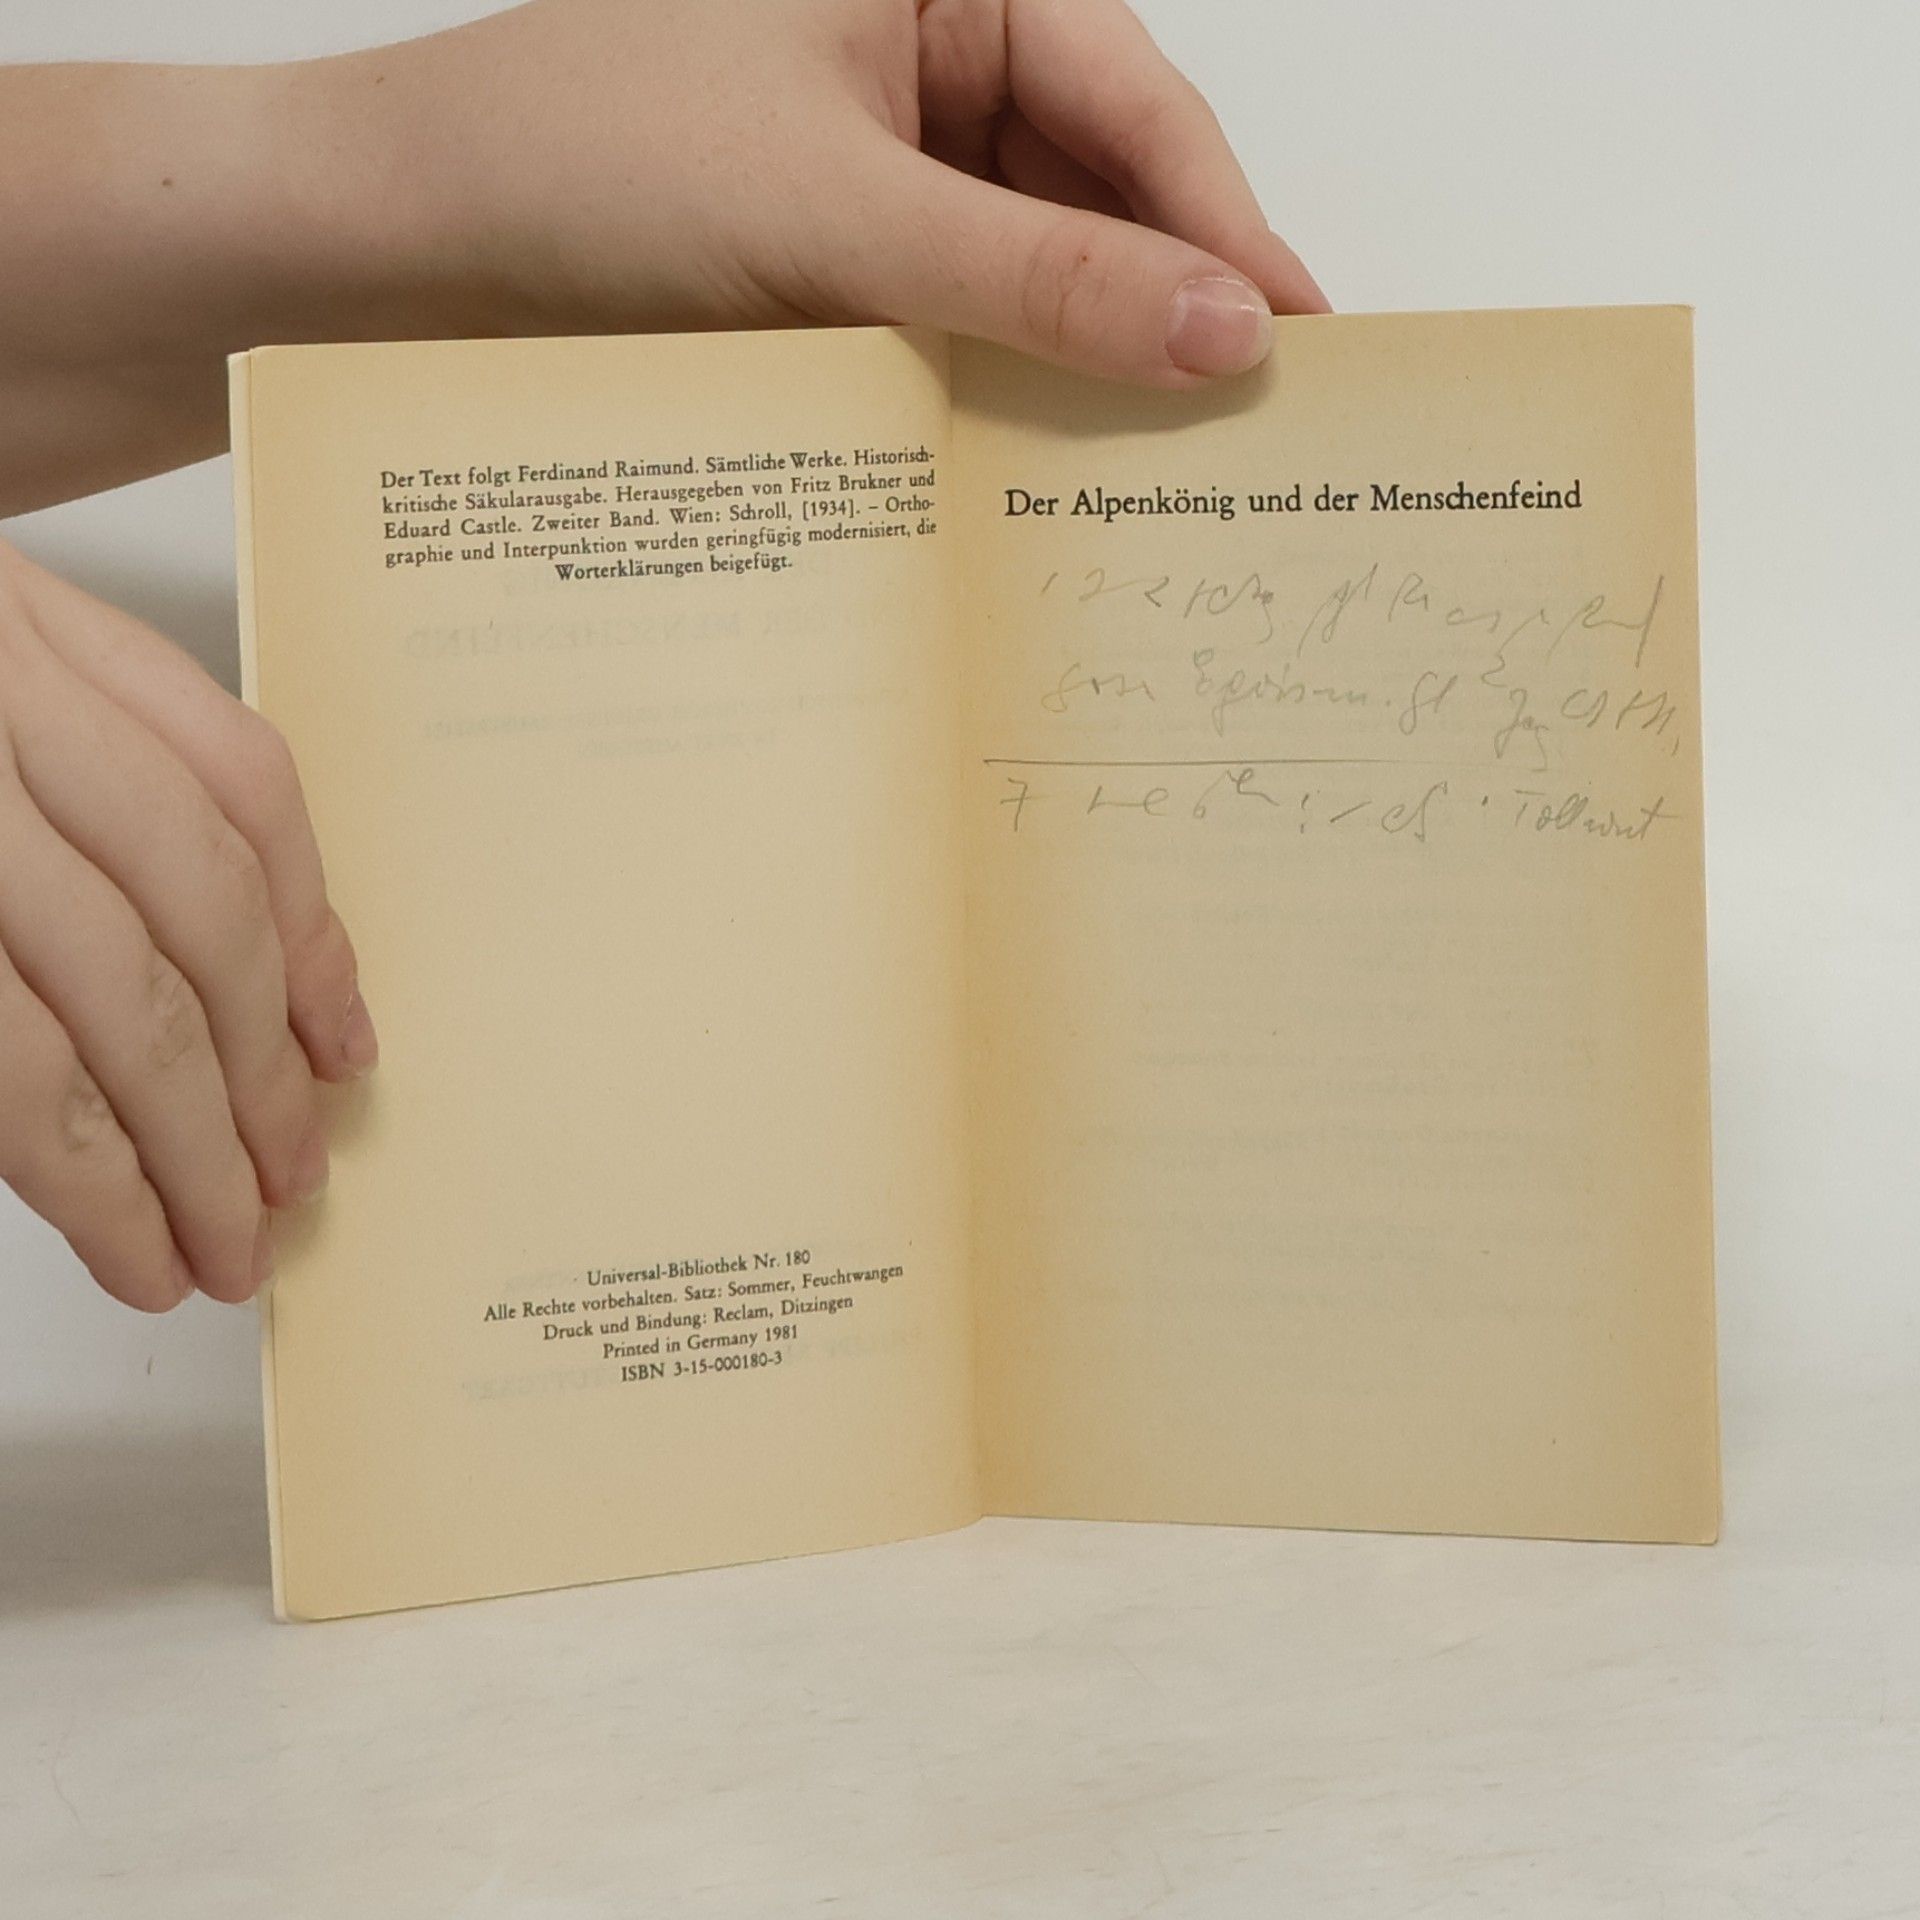 Der Text folgt Ferdinand Raimund. Sämtliche Werke. Historisch-
kritische Säkularausgabe. Herausgegeben von Fritz Brukner und
Eduard Castle. Zweiter Band. Wien: Schroll, [1934]. – Ortho-
graphie und Interpunktion wurden geringfügig modernisiert, die
Worterklärungen beigefügt.
Universal-Bibliothek Nr. 180
Alle Rechte vorbehalten. Satz: Sommer, Feuchtwangen
Druck und Bindung: Reclam, Ditzingen
Printed in Germany 1981
ISBN 3-15-000180-3
Der Alpenkönig und der Menschenfeind
Tollwut